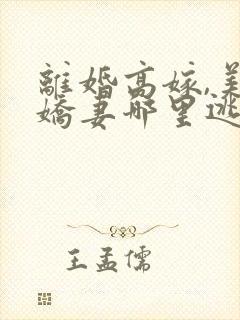 離婚高嫁,美
嬌妻哪里逃
王孟儒